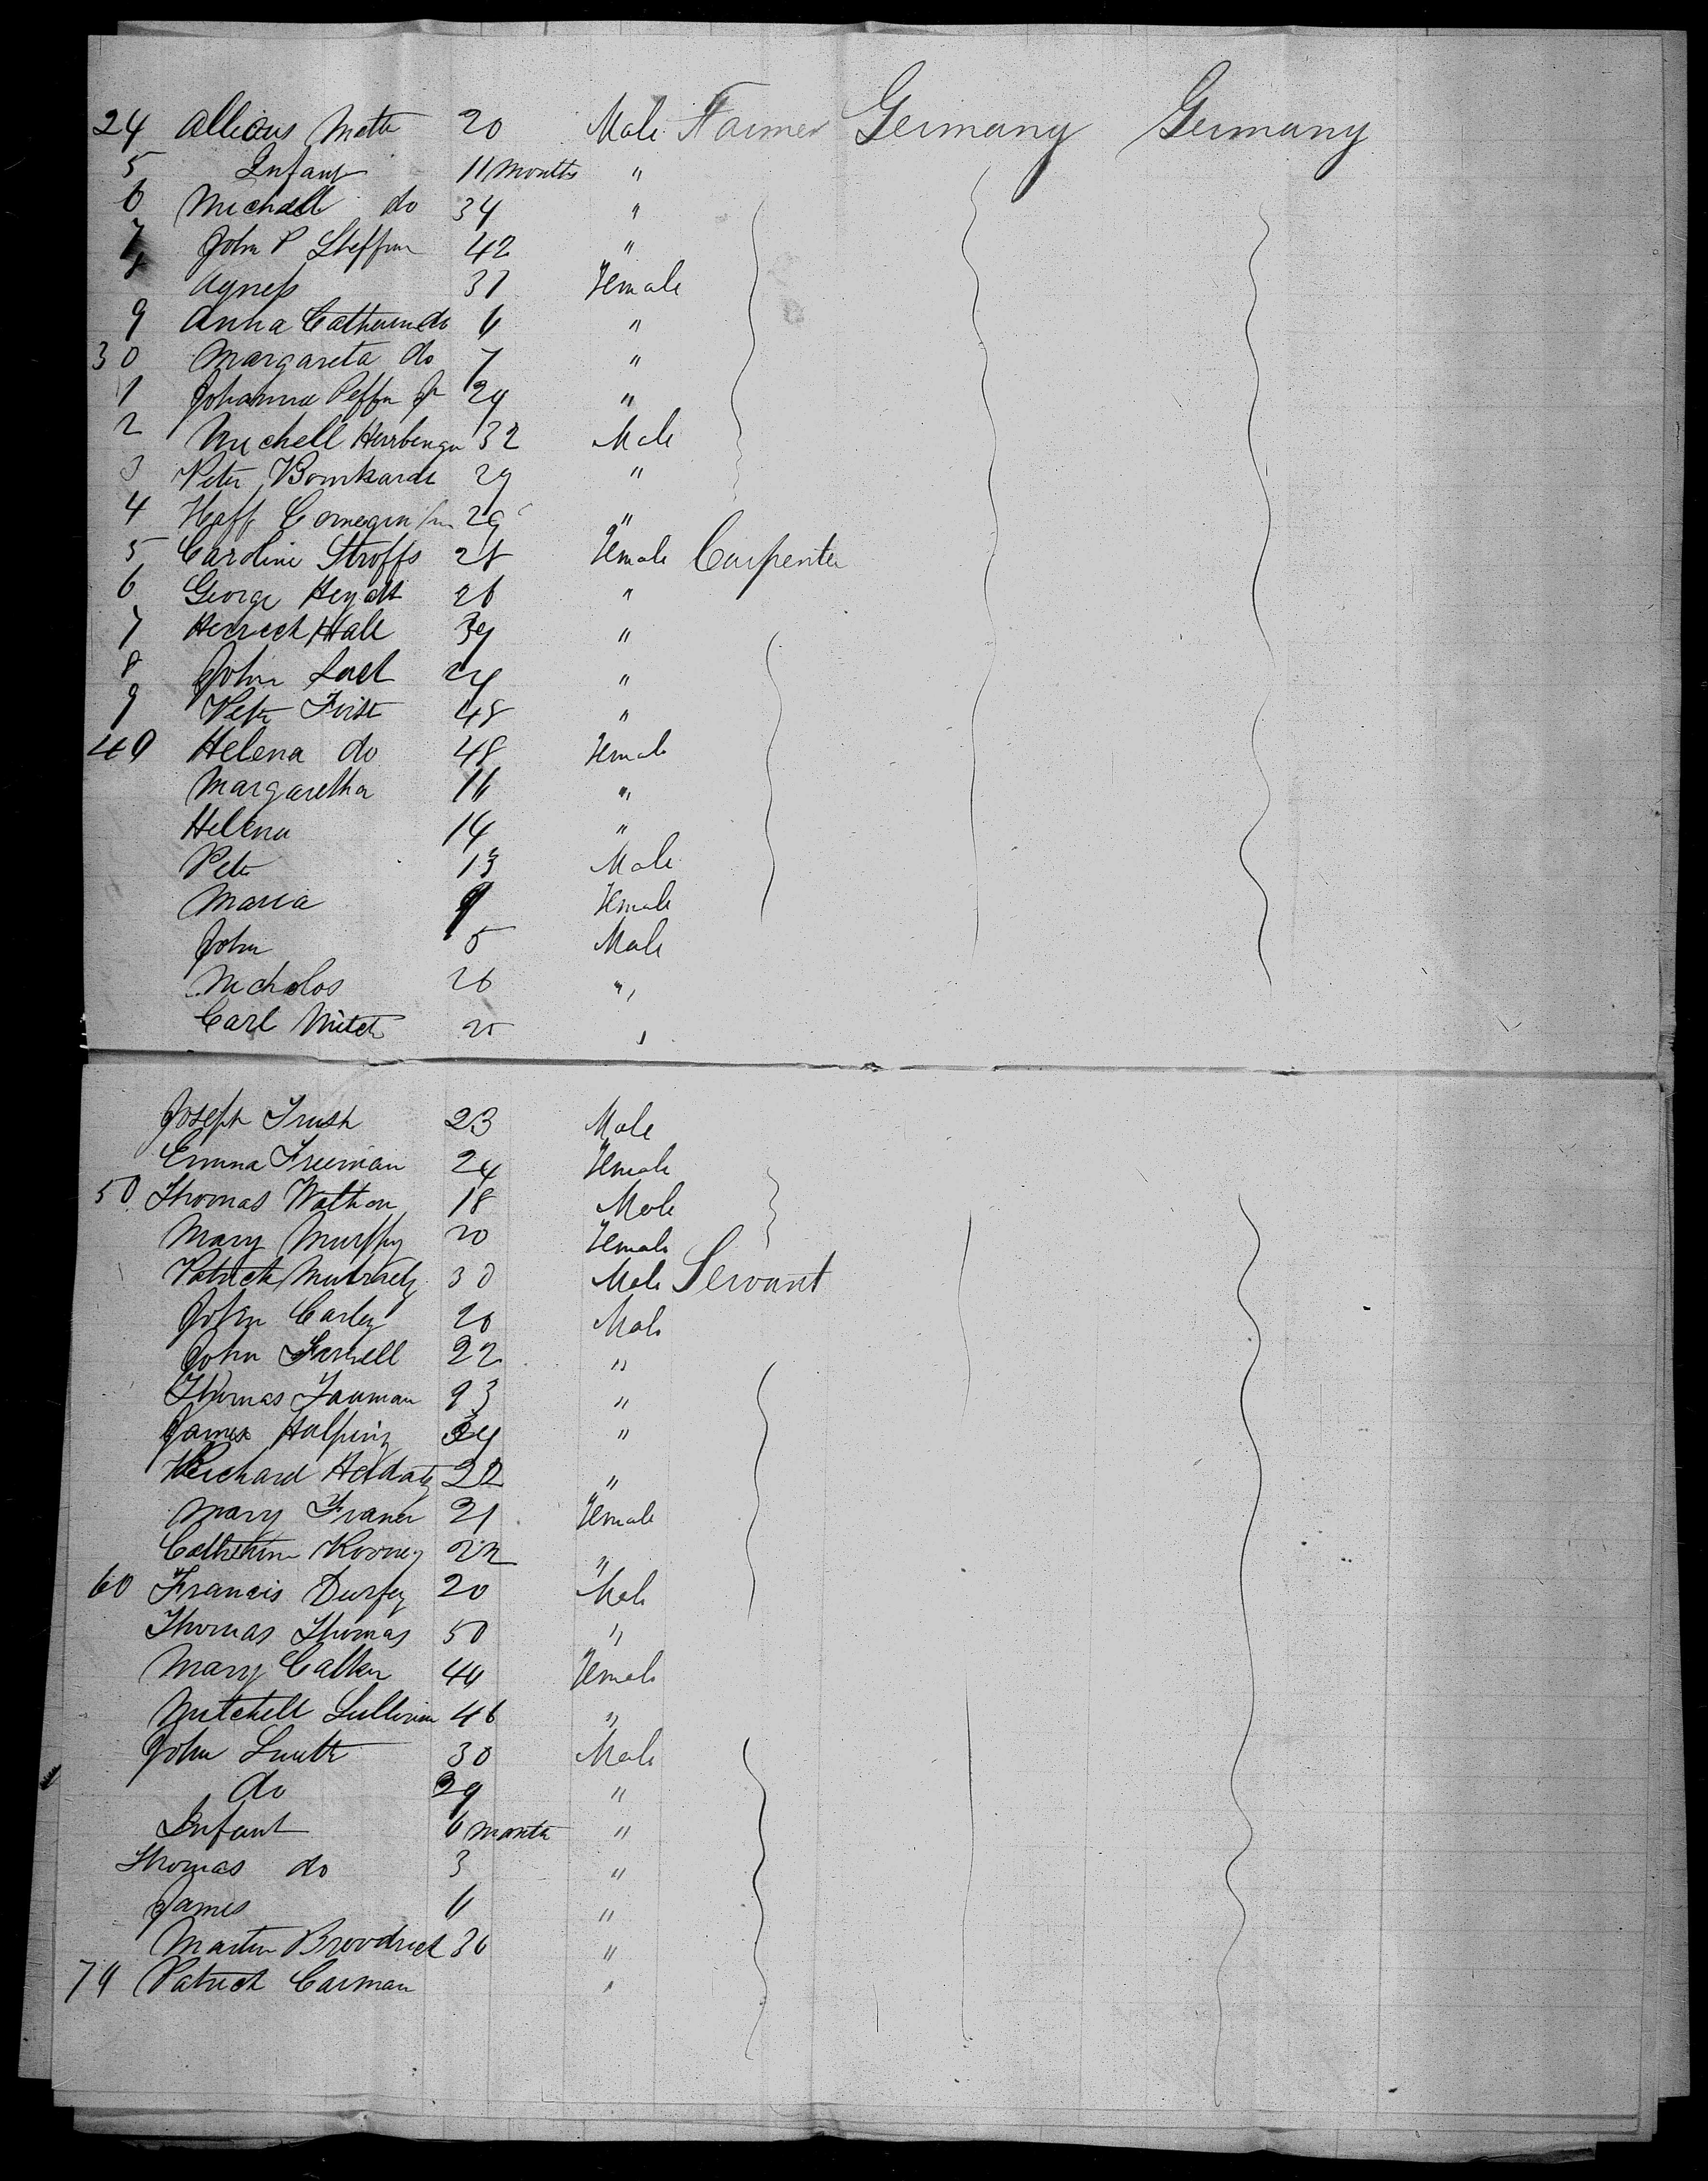 24 Allicius Mette 20 Male Farmer Germany Germany
5 Infant 11 Months "
6 Michell do 34 "
7 John P Steffen 42 "
8 Agness 37 Female
9 Anna Catherine do 6 "
30 Margareta do 7 "
1 Johanna Peffer 29 "
2 Michell Herrbenger 32 Male
3 Peter Bomkarde 29 "
4 Haff 29 "
5 Caroline Stroffs 28 Female Carpenter
6 George Heydt 26 "
7 Herrech Hall 39 "
8 John 24 "
9 Peter Forst 48 "
40 Helena do 48 Female
Margaretha 16 "
Helena 14 "
Peter 13 Male
Maria 9 Female
John 5 Male
Nicholos 26 "
Carl Mitch 25 "
Joseph Trush 23 Male
Emma Freeman 24 Female
50 Thomas Walton 18 Male
Mary Murphy 20 Female
Patrick 30 Male Servant
John Carley 20 Male
John Farrell 22 "
Thomas 23 "
James Halpiny 24 "
Richard 22 "
Mary Franer 21 Female
Catherine Rooney 22 "
60 Francis Durfey 20 Male
Thomas Thomas 50 "
Mary Calker 44 Female
Mitchell Sullivan 46 "
John Smith 30 Male
do 29 "
Infant 6 month "
Thomas do 3 "
James 6 "
Martin Brovdrick 36 "
74 Patrick Carman "